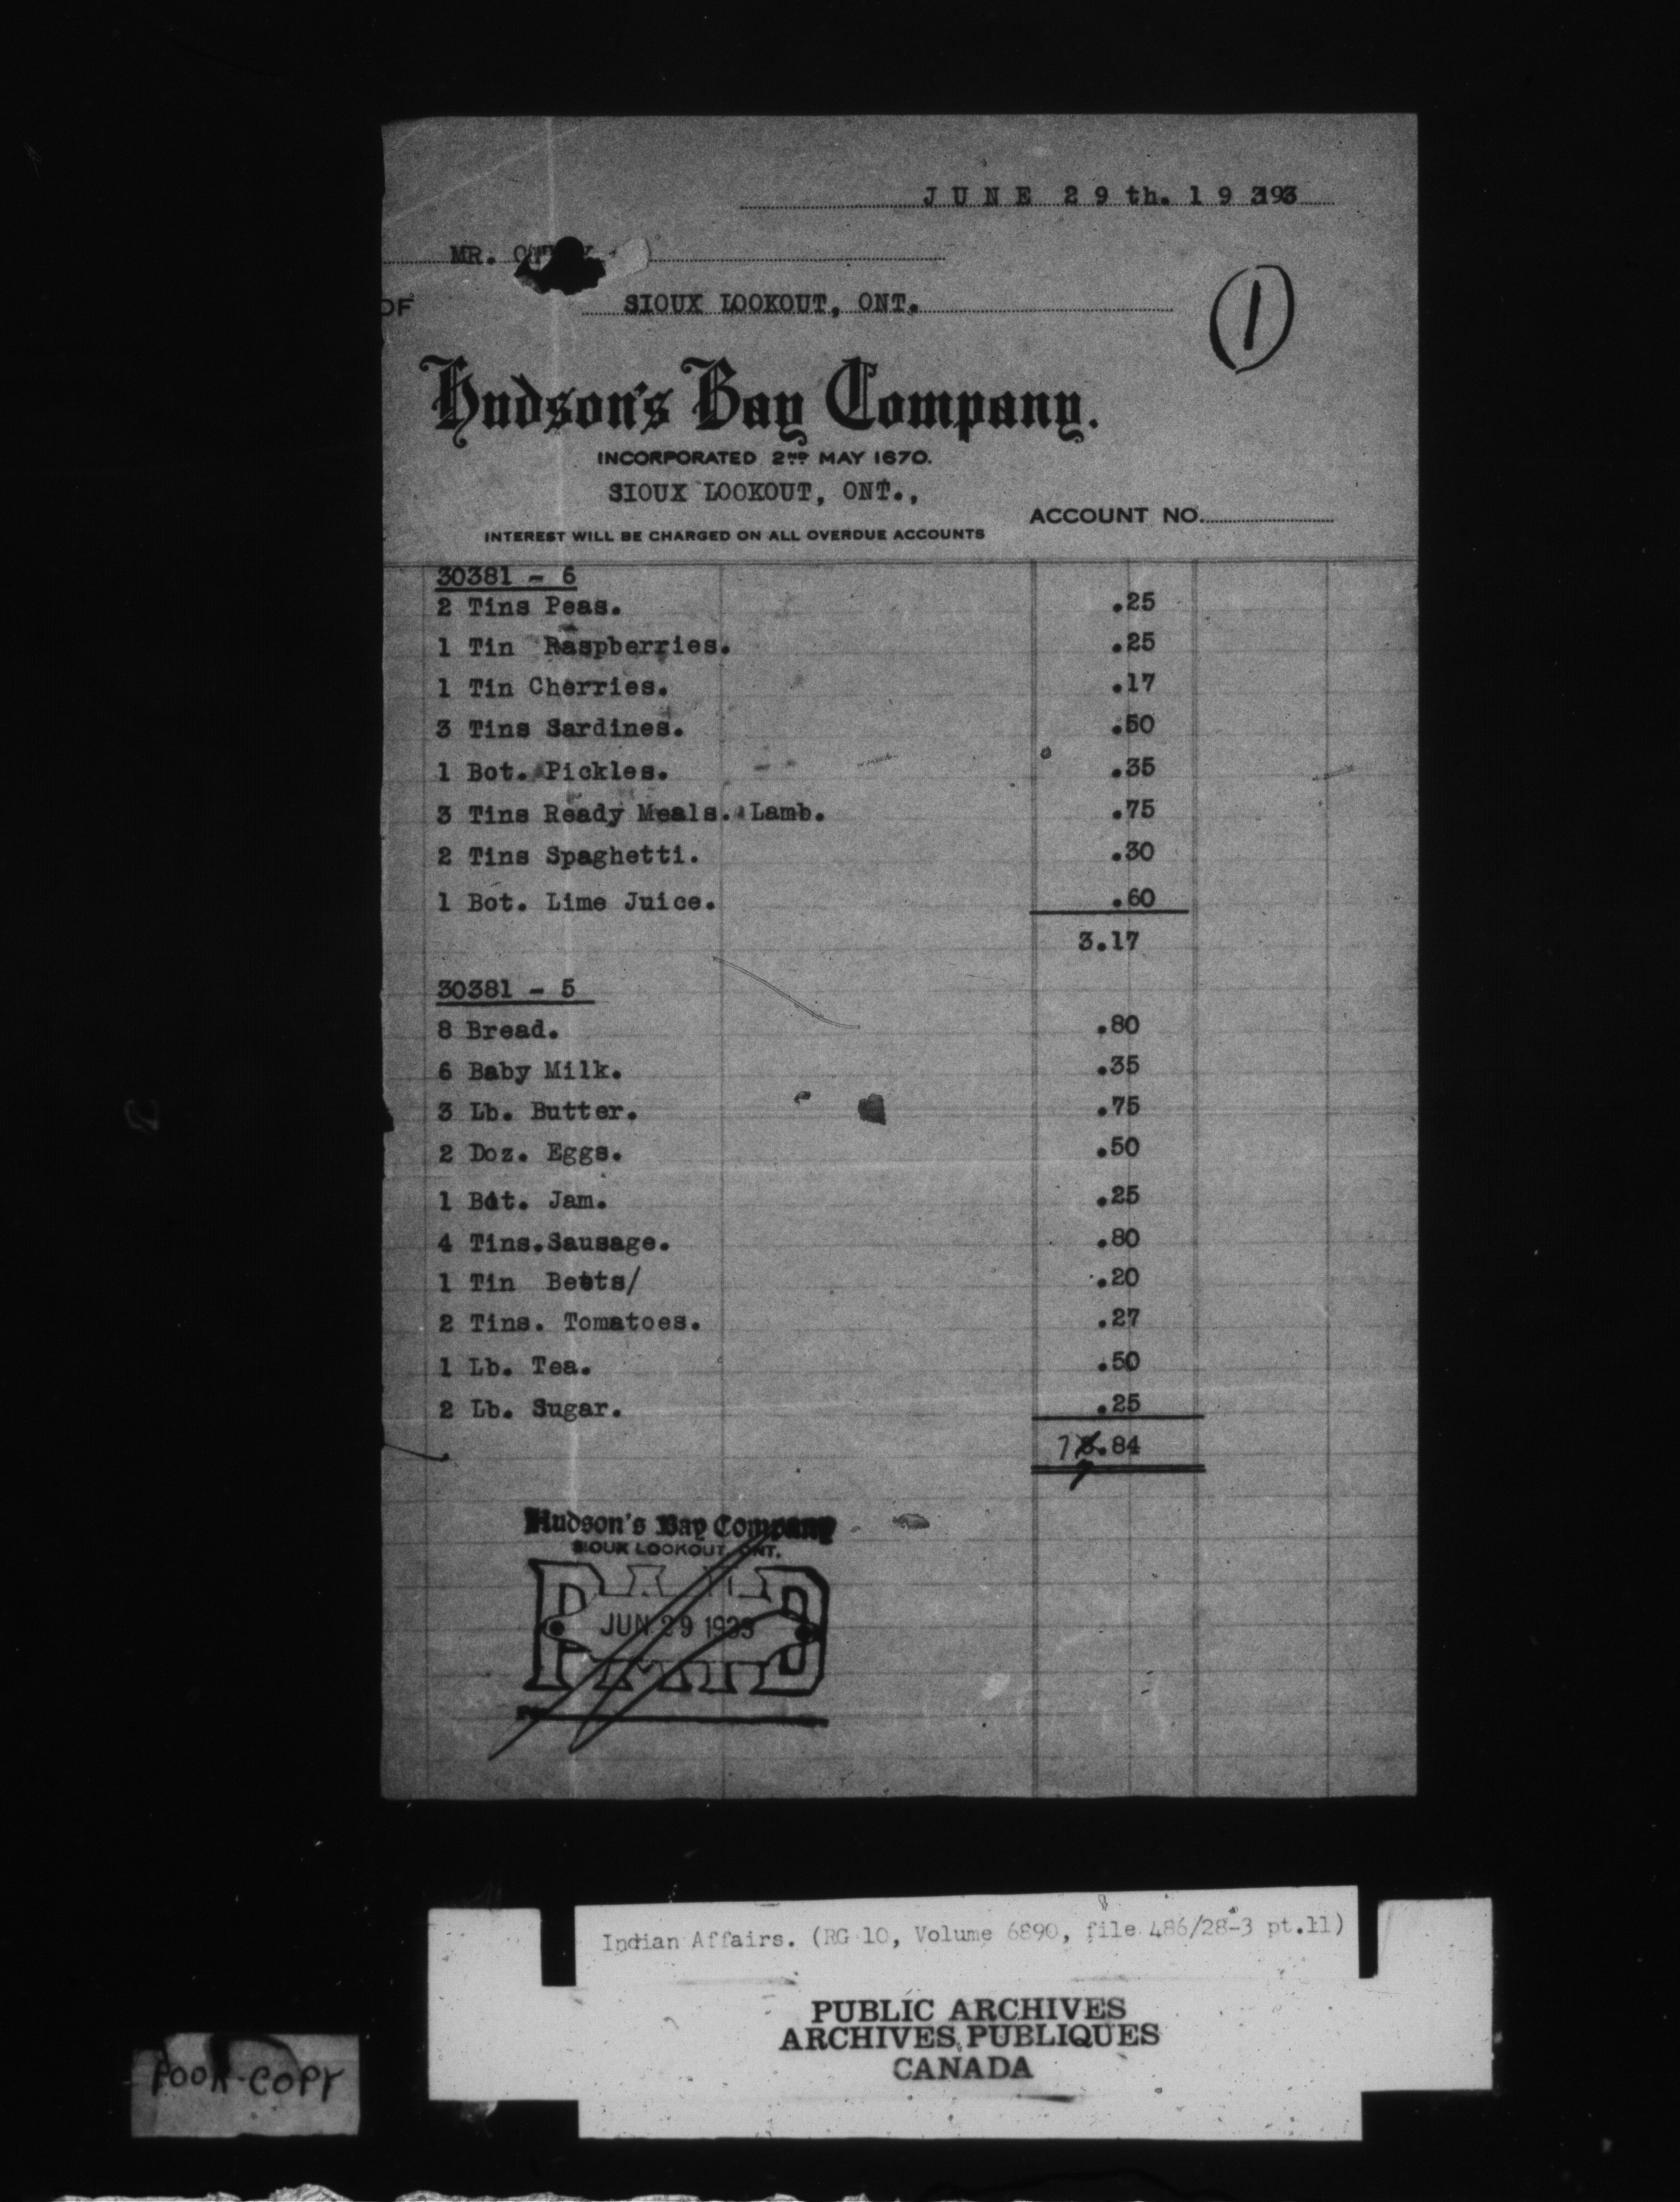 JUNE 29th. 1933
MR.
OF SIOUX LOOKOUT, ONT.
1
Hudson's Bay Company.
INCORPORATED 2ND MAY 1670.
SIOUX LOOKOUT, ONT.,
ACCOUNT NO.
INTEREST WILL BE CHARGED ON ALL OVERDUE ACCOUNTS
30381 - 6
2 Tins Peas. .25
1 Tin Raspberries. .25
1 Tin Cherries. .17
3 Tins Sardines. .50
1 Bot. Pickles. .35
3 Tins Ready Meals. Lamb. .75
2 Tins Spaghetti. .30
1 Bot. Lime Juice. .60
3.17
30381 - 5
8 Bread. .80
6 Baby Milk. .35
3 Lb. Butter. .75
2 Doz. Eggs. .50
1 Bot. Jam. .25
4 Tins.Sausage. .80
1 Tin Beets/ .20
2 Tins. Tomatoes. .27
1 Lb. Tea. .50
2 Lb. Sugar. .25
7.84
Hudson's Bay Company
SIOUX LOOKOUT, ONT.
PAID
JUN 29 1933
Indian Affairs. (RG 10, Volume 6890, file 486/28-3 pt.11)
PUBLIC ARCHIVES
ARCHIVES PUBLIQUES
CANADA
POOR COPY